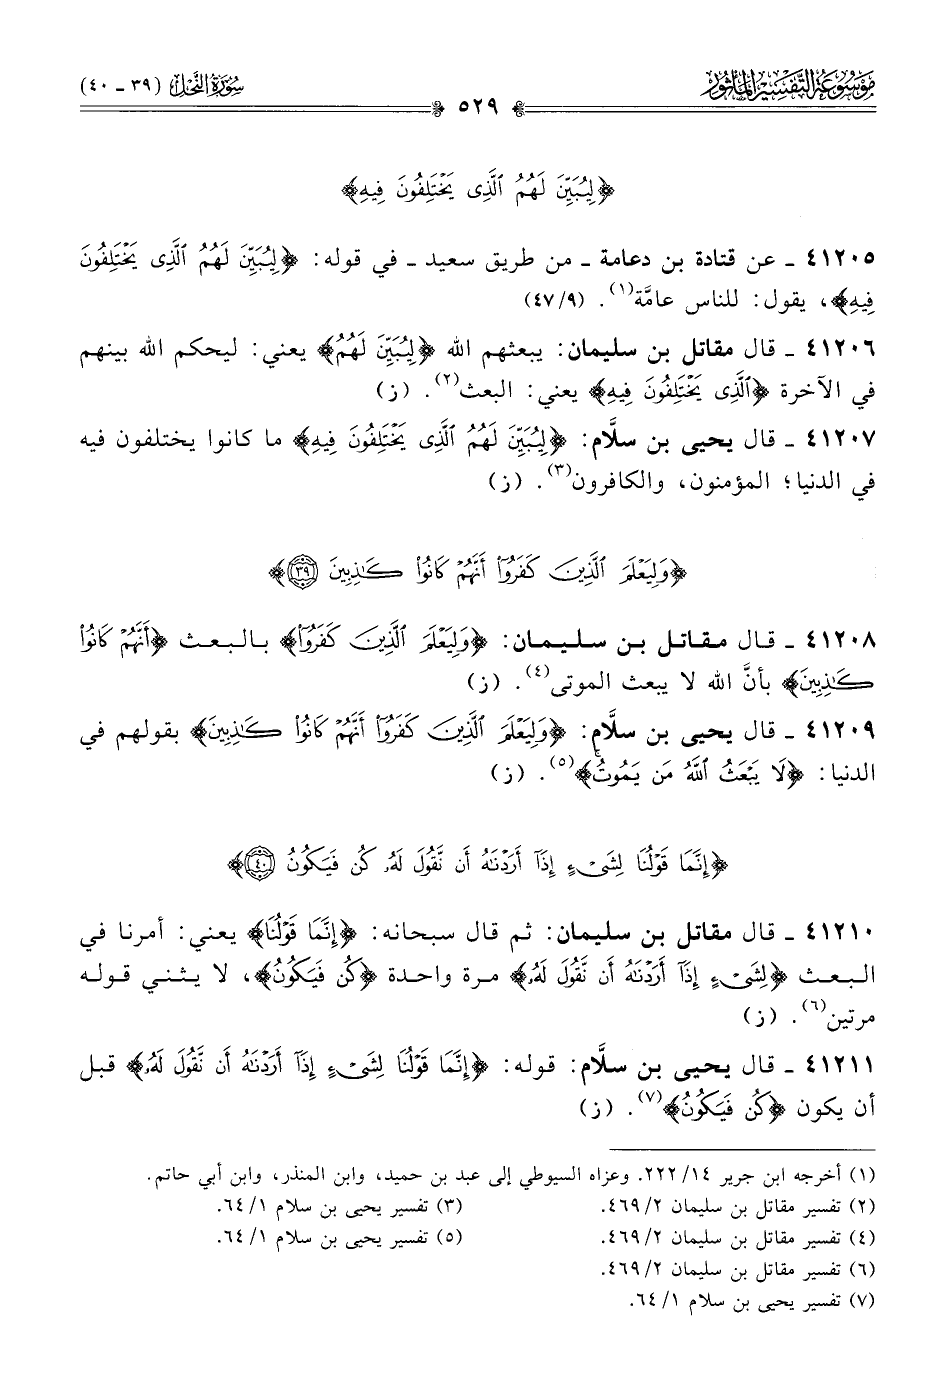 مَوْسُوعَةُ التَّفْسِيرِ المَأْثُورِ
سُورَةُ النَّحْلِ (٣٩ - ٤٠)
٥٢٩
﴿لِيُبَيِّنَ لَهُمُ ٱلَّذِى يَخْتَلِفُونَ فِيهِ﴾
٤١٢٠٥ - عن قتادة بن دعامة - من طريق سعيد - في قوله: ﴿لِيُبَيِّنَ لَهُمُ ٱلَّذِى يَخْتَلِفُونَ
فِيهِ﴾، يقول: للناس عامَّة(١). (٤٧/٩)
٤١٢٠٦ - قال مقاتل بن سليمان: يبعثهم الله ﴿لِيُبَيِّنَ لَهُمُ﴾ يعني: ليحكم الله بينهم
في الآخرة ﴿ٱلَّذِى يَخْتَلِفُونَ فِيهِ﴾ يعني: البعث(٢). (ز)
٤١٢٠٧ - قال يحيى بن سلَّام: ﴿لِيُبَيِّنَ لَهُمُ ٱلَّذِى يَخْتَلِفُونَ فِيهِ﴾ ما كانوا يختلفون فيه
في الدنيا؛ المؤمنون، والكافرون(٣). (ز)
﴿وَلِيَعْلَمَ ٱلَّذِينَ كَفَرُوٓا۟ أَنَّهُمْ كَانُوا۟ كَـٰذِبِينَ ٣٩﴾
٤١٢٠٨ - قال مقاتل بن سليمان: ﴿وَلِيَعْلَمَ ٱلَّذِينَ كَفَرُوٓا۟﴾ بالبعث ﴿أَنَّهُمْ كَانُوا۟
كَـٰذِبِينَ﴾ بأنَّ الله لا يبعث الموتى(٤). (ز)
٤١٢٠٩ - قال يحيى بن سلَّام: ﴿وَلِيَعْلَمَ ٱلَّذِينَ كَفَرُوٓا۟ أَنَّهُمْ كَانُوا۟ كَـٰذِبِينَ﴾ بقولهم في
الدنيا: ﴿لَا يَبْعَثُ ٱللَّهُ مَن يَمُوتُ﴾(٥). (ز)
﴿إِنَّمَا قَوْلُنَا لِشَىْءٍ إِذَآ أَرَدْنَـٰهُ أَن نَّقُولَ لَهُۥ كُن فَيَكُونُ ٤٠﴾
٤١٢١٠ - قال مقاتل بن سليمان: ثم قال سبحانه: ﴿إِنَّمَا قَوْلُنَا﴾ يعني: أمرنا في
البعث ﴿لِشَىْءٍ إِذَآ أَرَدْنَـٰهُ أَن نَّقُولَ لَهُۥ﴾ مرة واحدة ﴿كُن فَيَكُونُ﴾، لا يثني قوله
مرتين(٦). (ز)
٤١٢١١ - قال يحيى بن سلَّام: قوله: ﴿إِنَّمَا قَوْلُنَا لِشَىْءٍ إِذَآ أَرَدْنَـٰهُ أَن نَّقُولَ لَهُۥ﴾ قبل
أن يكون ﴿كُن فَيَكُونُ﴾(٧). (ز)
(١) أخرجه ابن جرير ١٤/ ٢٢٢. وعزاه السيوطي إلى عبد بن حميد، وابن المنذر، وابن أبي حاتم.
(٢) تفسير مقاتل بن سليمان ٢/ ٤٦٩. (٣) تفسير يحيى بن سلام ١/ ٦٤.
(٤) تفسير مقاتل بن سليمان ٢/ ٤٦٩. (٥) تفسير يحيى بن سلام ١/ ٦٤.
(٦) تفسير مقاتل بن سليمان ٢/ ٤٦٩.
(٧) تفسير يحيى بن سلام ١/ ٦٤.